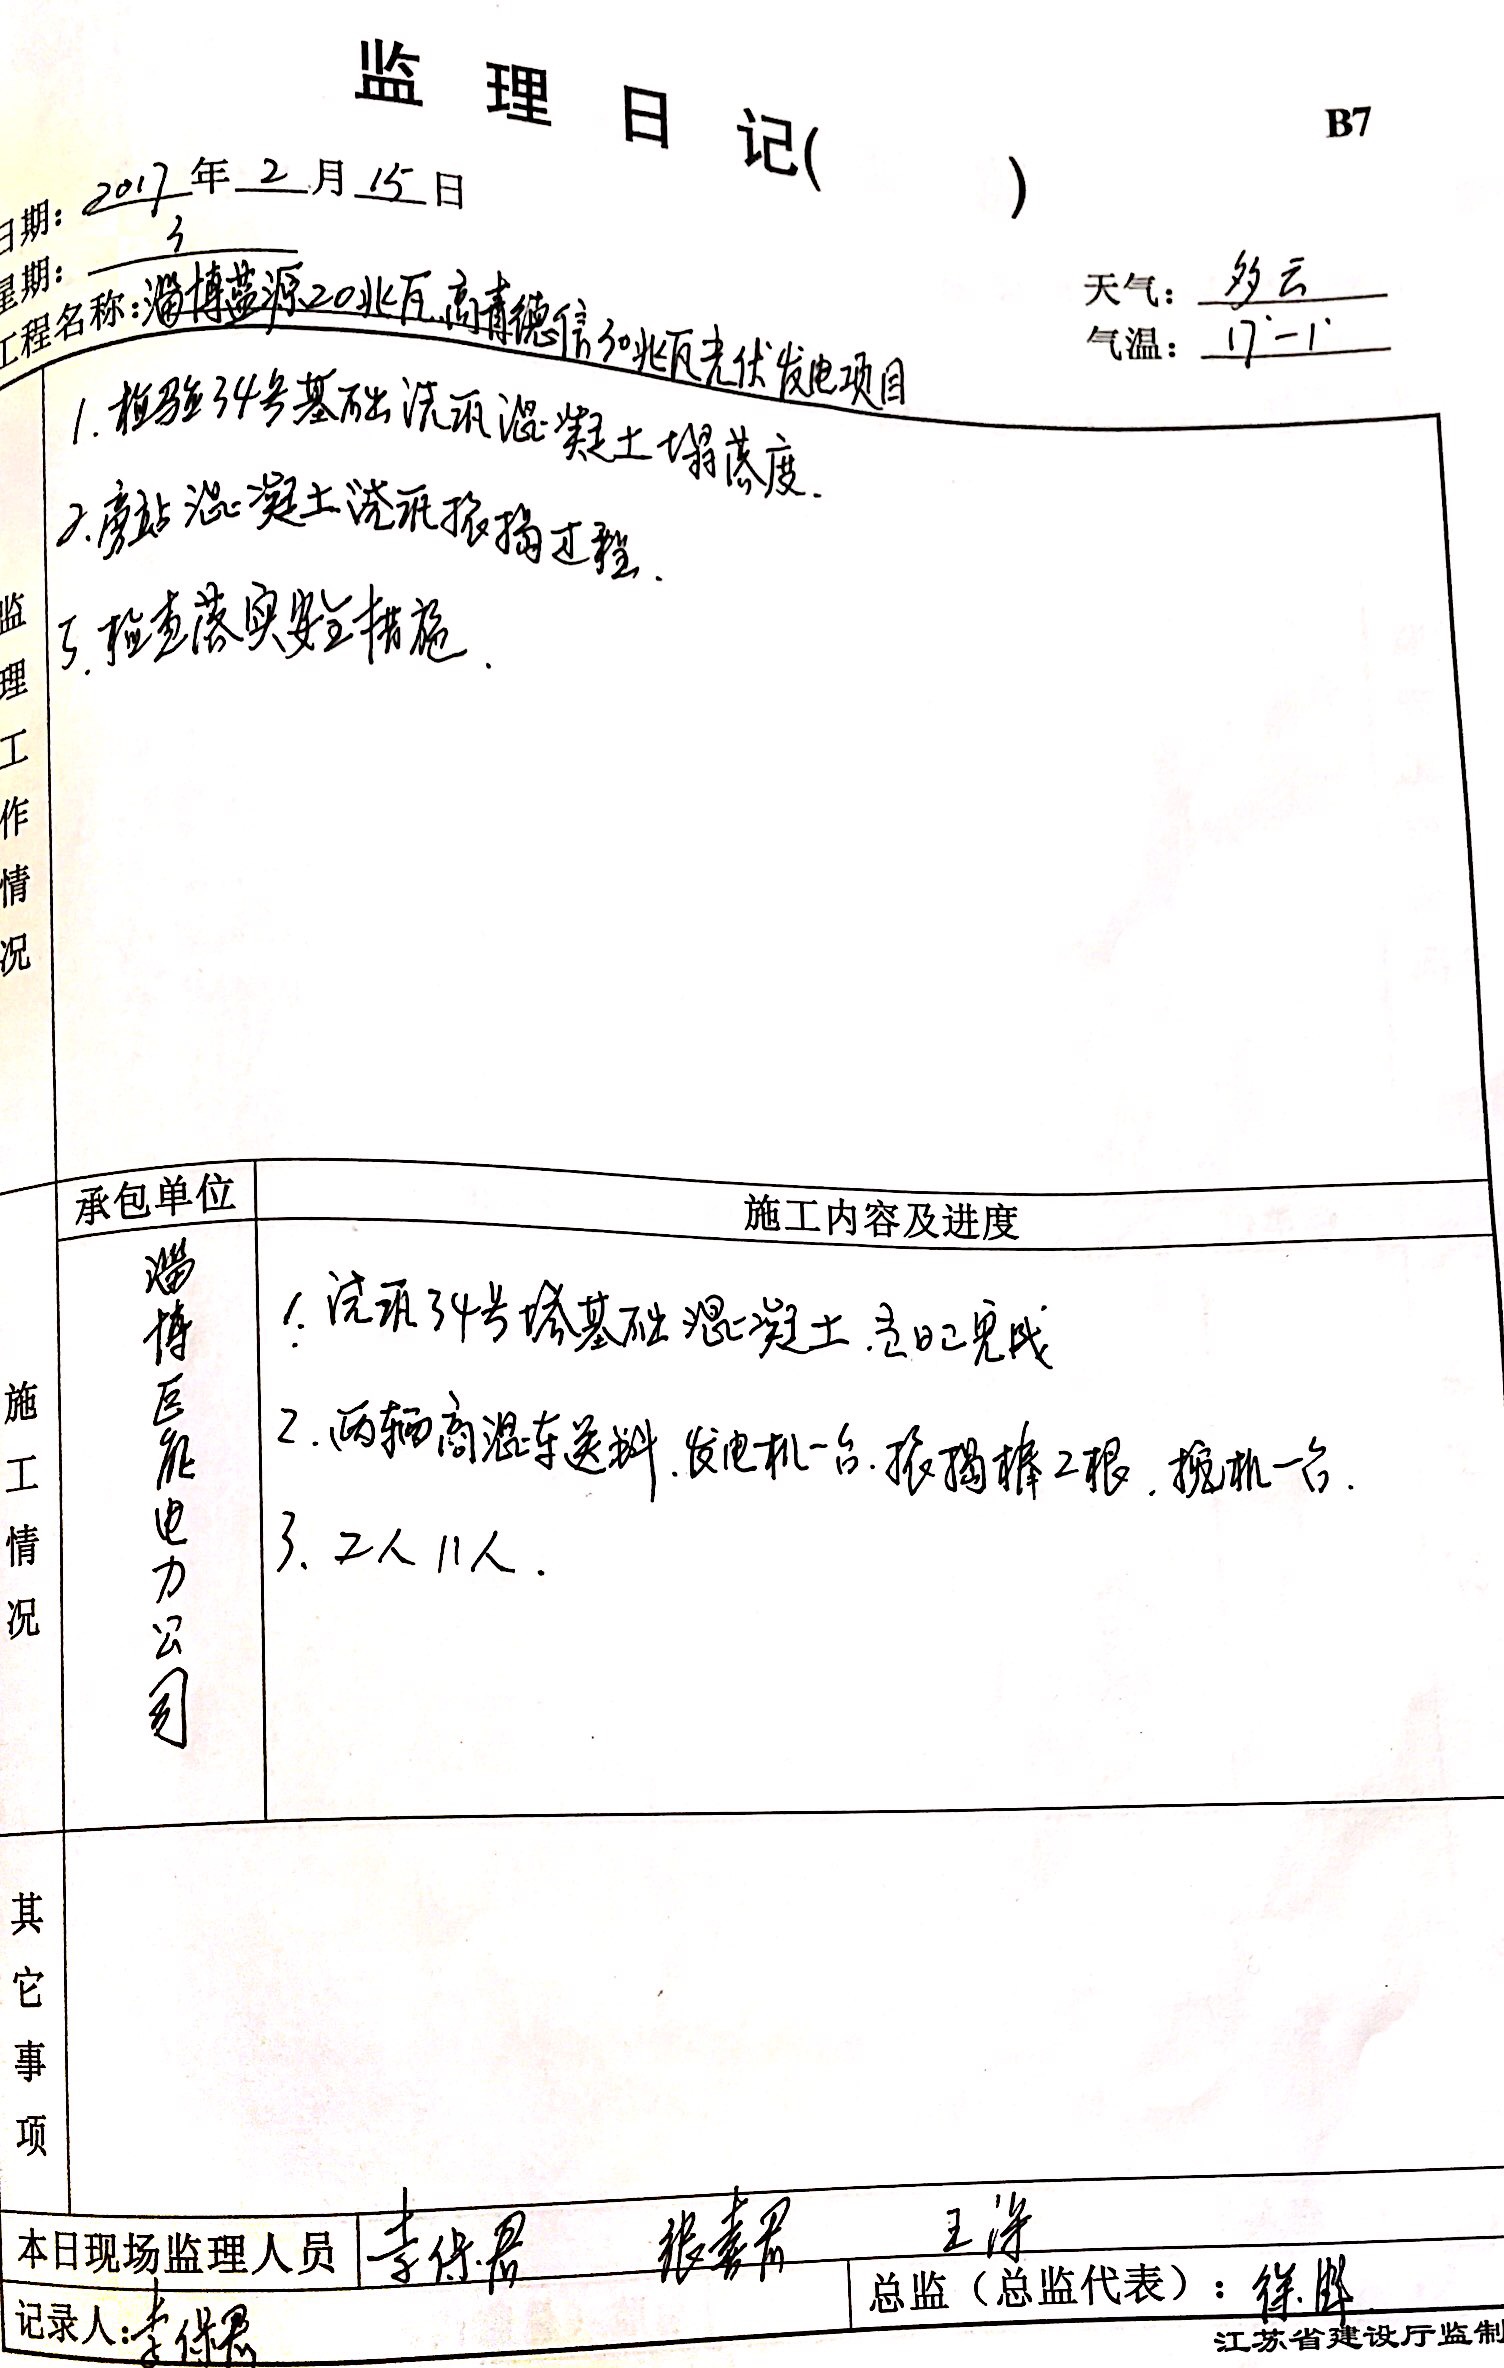 监理日记( )
B7
日期：2017年2月15日
星期：3
天气：多云
工程名称：淄博蓝源20兆瓦、高青德信30兆瓦光伏发电项目
气温：17°-1°
监理工作情况
1.检验34号基础浇筑混凝土塌落度.
2.旁站混凝土浇筑振捣过程.
3.检查落实安全措施.
施工情况
承包单位
施工内容及进度
淄博巨能电力公司
1.浇筑34号塔基础混凝土.当日已完成
2.两辆商混车送料.发电机一台.振捣棒2根.挖机一台.
3.工人11人.
其它事项
本日现场监理人员
李保君 王
记录人：李保君
总监（总监代表）：徐
江苏省建设厅监制